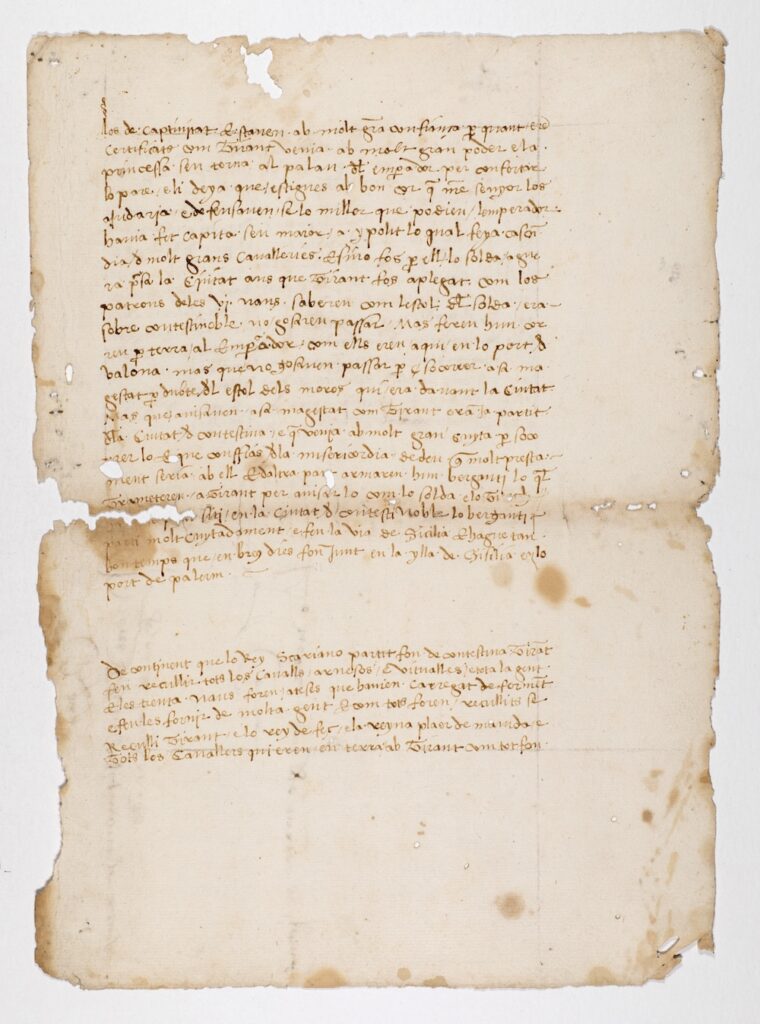 los de captivitat Estaven ab molt gra confiança per quant ere
Certificats com Tirant venia ab molt gran poder e la
princessa sen torna al palau del emperador per confortar
lo pare e li deya que estigues ab bon cor que nre senyor los
ajudaria e defensaven se lo millor que podien lemperador
havia fet capita seu maior a ypolit lo qual feya cascu
dia de molt grans Cavalleries E sino fos per ell lo solda ague
ra presa la Ciutat ans que Tirant fos aplegat com los
patrons deles vij naus saberen com lestol del solda era
sobre contestinoble no gosaren passar Mas feren hun cor
reu per terra al Emperador com ells eren aqui en lo port de
valona mas que no gosaven passar per socorrer a sa ma
gestat per dubte del estol dels moros qui era davant la Ciutat
Mas que avisaven a sa magestat com Tirant era ja partit
dla Ciutat de contestina e que venia ab molt gran cuyta per soco
rrer lo E que confias dla misericordia de deu que molt presta
ment seria ab ell E daltra part armaren hun berganti lo qual
Trameteren a Tirant per avisar lo com lo solda e lo
siti en la Ciutat de contestinoble lo berganti
parti molt cuytadament e feu la via de Sicilia E hague tan
bon temps que en breus dies fon junt en la ylla de Sisilia en lo
port de palerm
De continent que lo Rey Scariano partit fon de contestina Tirant
feu recullir tots los Cavalls arnesos e vitualles e tota la gent
E les trenta naus foren ateses que havien carregat de forment
e feu les fornir de molta gent E com tots foren recullits se
Reculli Tirant e lo rey de feç e la reyna plaer de mavida e
Tots los Cavallers qui eren en terra ab Tirant com tot fon